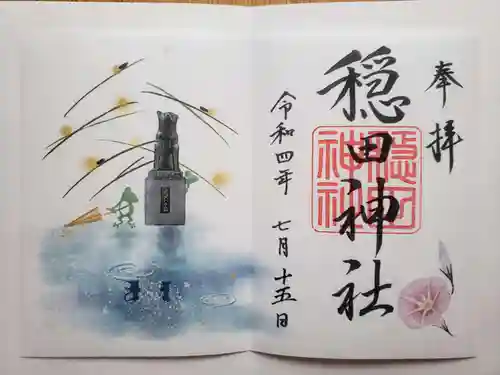 奉拝
穏田神社
穏田
神社
令和四年 七月十五日